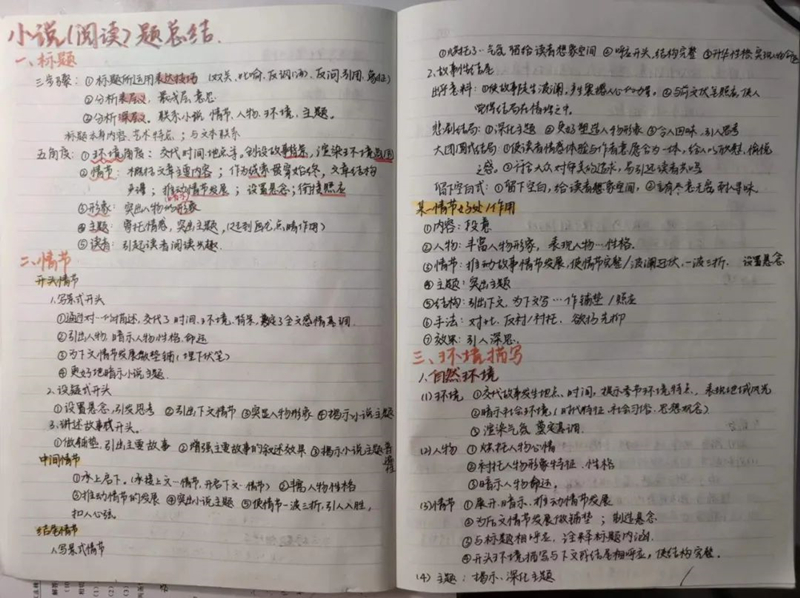 小说(阅读)题总结.
一、标题
三步骤: ①标题所运用表达技巧 (双关、比喻、反讽,反问,引用,象征)
②分析表层义, 最浅层意思
③分析深层义, 联系小说 情节、人物、环境、主题。
标题本身内容、艺术特点; 与文本联系
五角度: ①环境角度: 交代时间地点等, 创设故事情景, 渲染了环境氛围
②情节: 概括文章主要内容; 作为线索贯穿始终, 文章结构
推动情节发展; 设置悬念; 衔接照应
③形象: 突出人物的形象
④主题: 寄托情感, 突出主题,
⑤读者: 引起读者阅读兴趣.
二、情节
开头情节
1.写景式开头
①通过对…的描述, 交代了时间、环境、背景, 奠定了全文感情基调.
②引出人物, 暗示人物性格、命运
③为下文情节发展做铺垫 (埋下伏笔)
④更好地暗示小说主题.
2.设疑式开头
①设置悬念, 引发思考 ②引出下文情节 ③突显人物形象 ④揭示小说主题
3.讲述故事式开头.
①做铺垫, 引出主要故事 ②增强主要故事的叙述效果 ③揭示小说主题
中间情节
①承上启下。(承接上文…情节, 开启下文…情节) ②丰富人物性格
③推动情节的发展 ④突出小说主题 ⑤使情节一波三折, 引人入胜,
扣人心弦.
结尾情节
1.写景式情节
①烘托了…气氛, 留给读者想象空间 ②呼应开头, 结构完整
2.故事性结尾
出乎意料: ①使故事陡生波澜, 产生震撼人心的力量, ②与前文伏笔照应, 使人
觉得结局在情理之中.
悲剧结局: ①深化主题 ②更好塑造人物形象 ③令人回味, 引人思考
大团圆式结局: ①使读者情感体验与作者意愿合为一体, 给人以欣慰、愉悦
之感. ②符合大众对审美的追求, 易引起读者共鸣
留下空白式: ①留下空白, 给读者想象空间, ②言有尽意无穷 耐人寻味.
某一情节好处/作用
①内容: 段意
②人物: 丰富人物形象, 表现人物…性格.
③情节: 推动故事情节发展, 使情节完整/波澜起伏、一波三折. 设置悬念
④主题: 突出主题
⑤结构: 引出下文, 为下文写…作铺垫/照应
⑥手法: 对比、反衬/衬托、欲扬先抑
⑦效果: 引人深思.
三、环境描写
1.自然环境
(1)环境 ①交代故事发生地点、时间, 揭示季节环境特点, 表现地域风光
②暗示社会环境 (时代特征, 社会习俗, 思想观念)
③渲染气氛 奠定基调.
(2)人物 ①烘托人物心情
②衬托人物形象特征、性格
③暗示人物命运.
(3)情节 ①展开、暗示、推动情节发展
②为后文情节发展做铺垫; 制造悬念
③与标题相呼应, 诠释标题内涵.
④开头环境描写与下文或结尾相呼应, 使结构完整.
(4) 主题: 揭示、深化主题